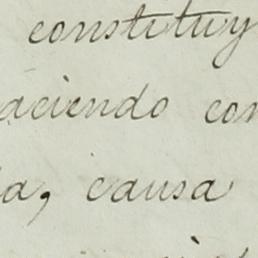 constituy
aciendo con
a, causa